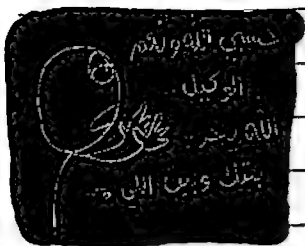 حسبي الله ونعم
الوكيل..
الله
بينك وبين اللي